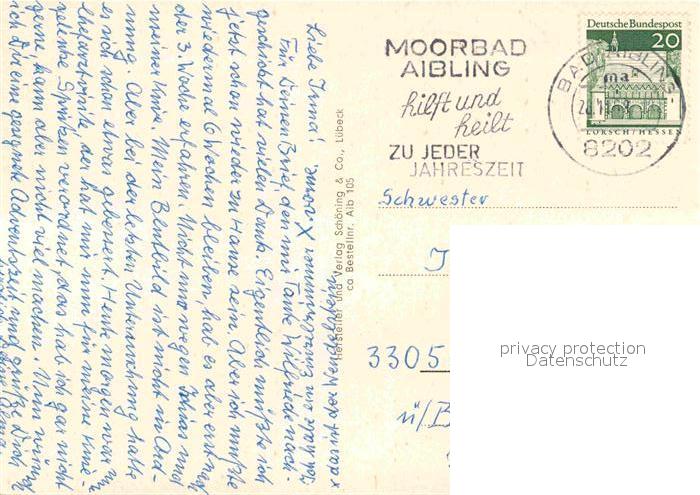 MOORBAD
AIBLING
hilft und
heilt
ZU JEDER
JAHRESZEIT
BAD AIBLING
ma
8202
Deutsche Bundespost
20
LORSCH/HESSEN
Schwester
3305
ü/B
privacy protection
Datenschutz
Hersteller und Verlag Schöning & Co., Lübeck
ca Bestellnr. Aib 105
Liebe Irma!
Für Deinen Brief, den mir Tante Wilfriede nach-
geschickt hat vielen Dank. Eigentlich müßte ich
jetzt schon wieder zu Hause sein. Aber ich mußte
wiedermal 6 Wochen bleiben, hab es aber erst in
der 3. Woche erfahren. Nicht nur wegen Ischias und
meiner Knie. Mein Blutbild ist nicht in Ord-
nung. Aber bei der letzten Untersuchung hatte
es sich schon etwas gebessert. Heute morgen war ich
Chefarztvisite der hat mir nun für meine Knie-
gelenke Spritzen verordnet, das hab ich gar nicht
gerne, kann aber nicht viel machen. Nun wünsche
ich Dir eine gesegnete Adventszeit und grüße Dich